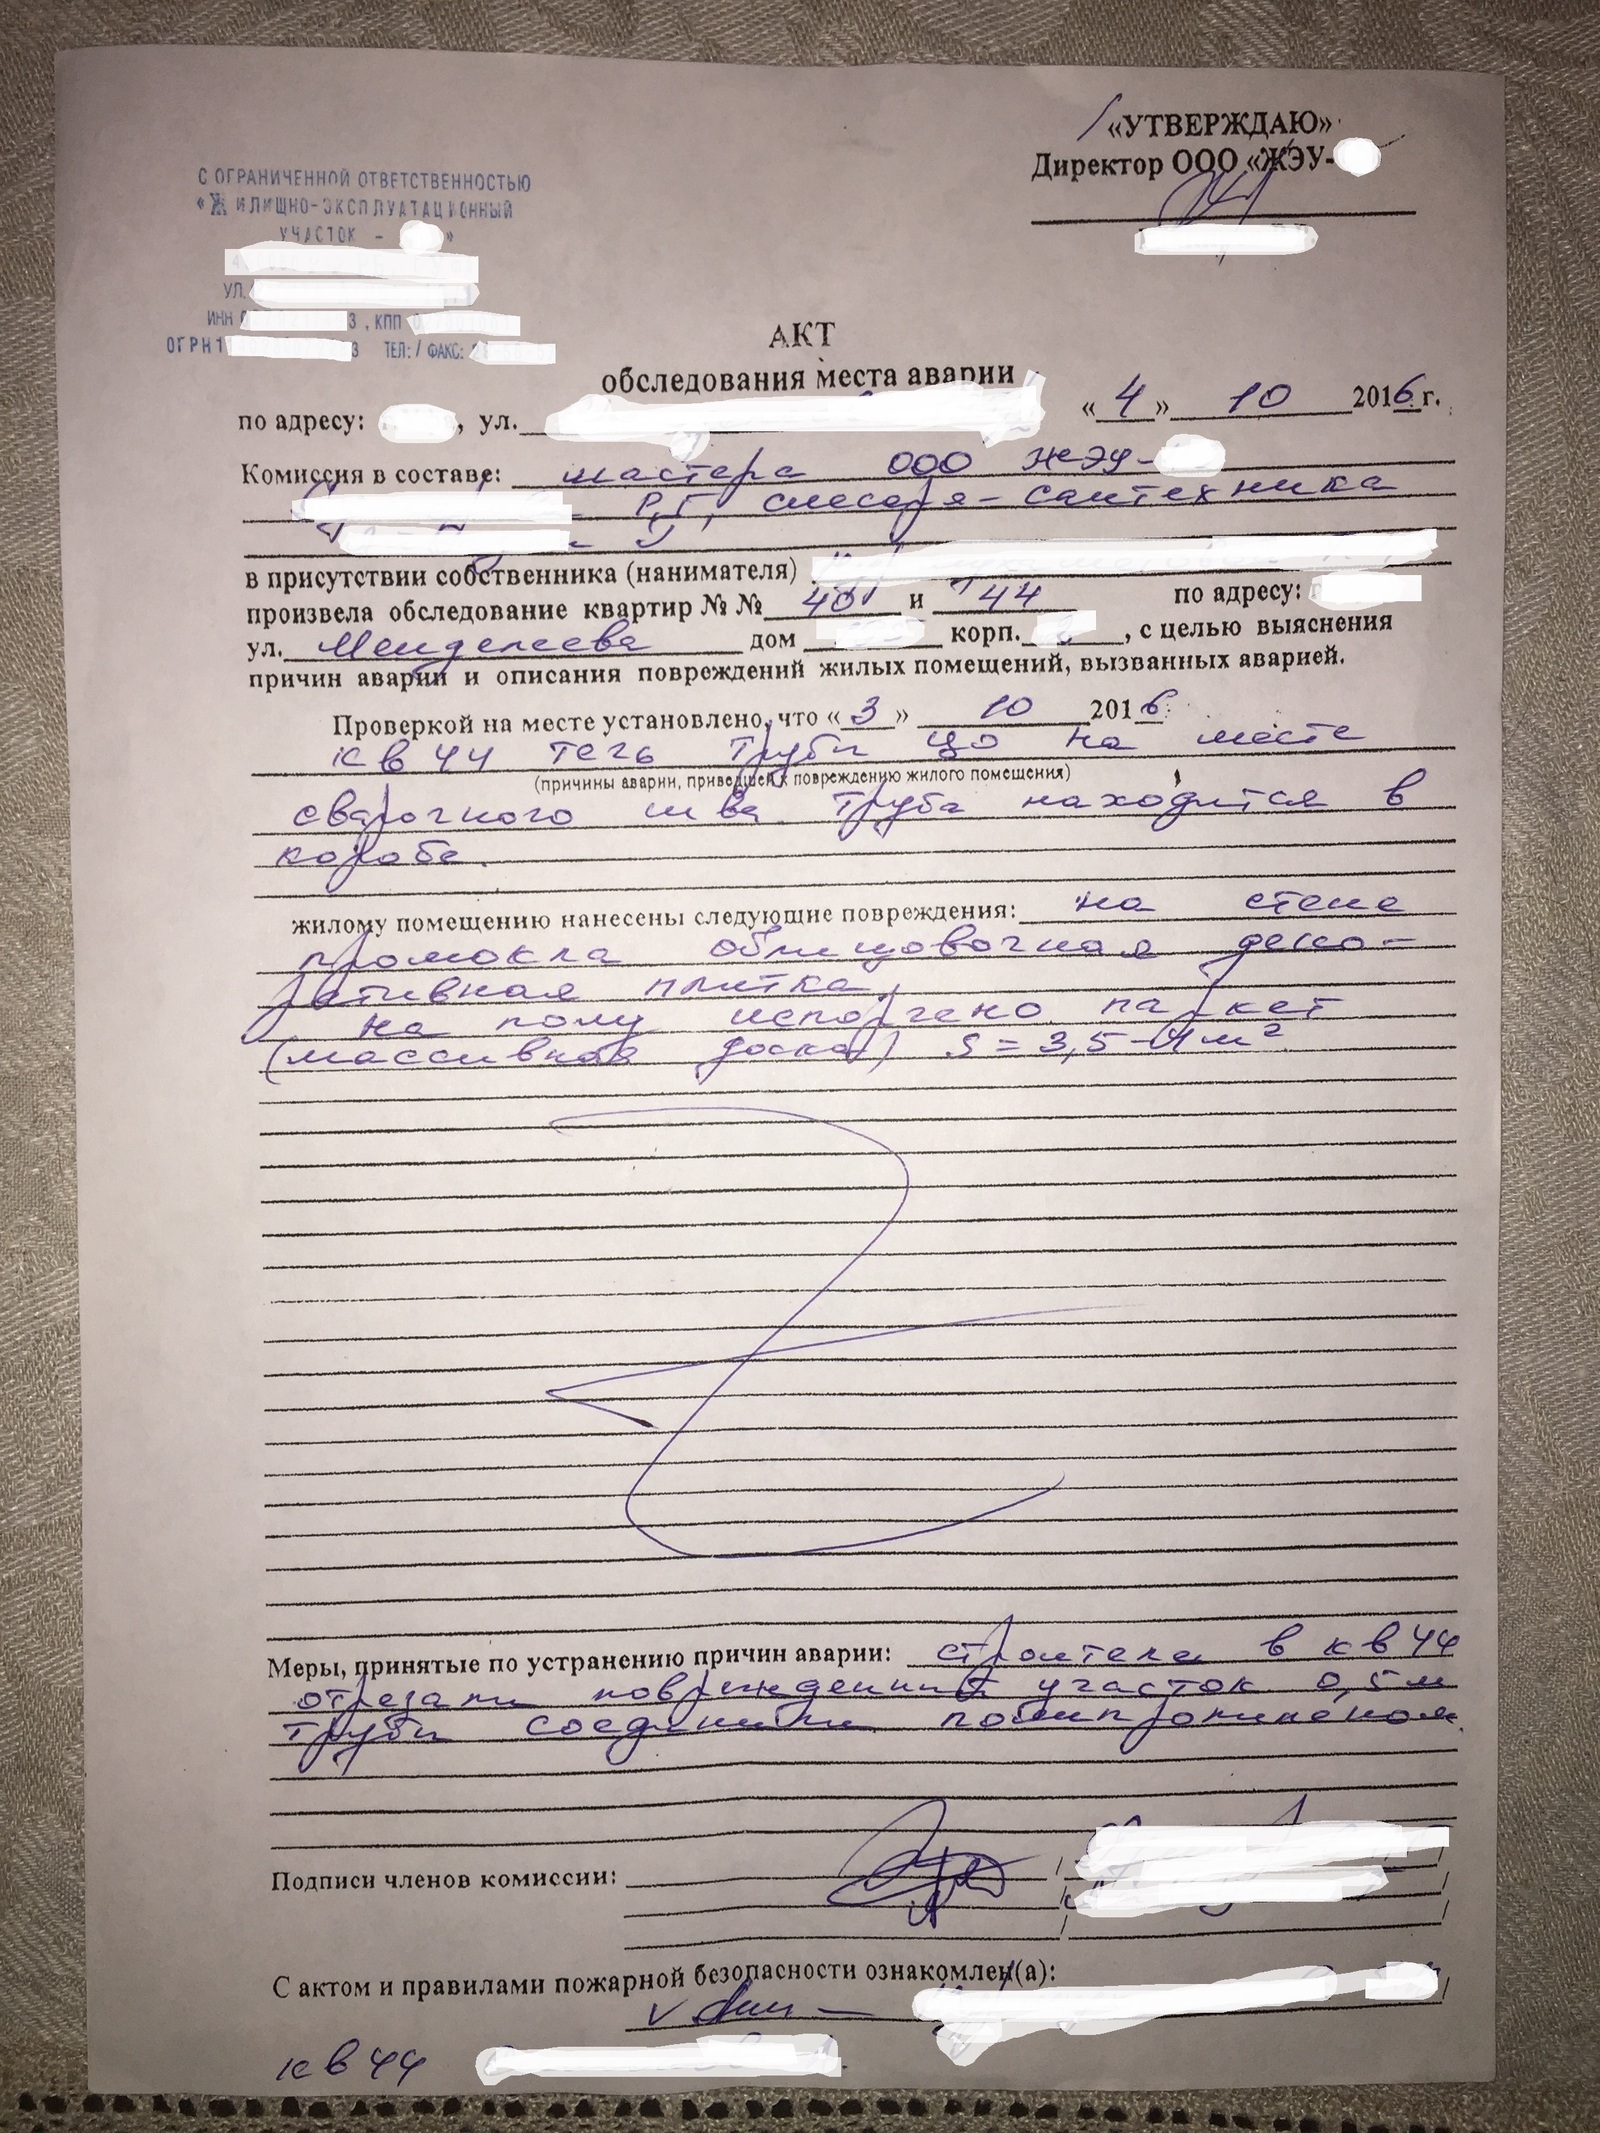 «УТВЕРЖДАЮ»
Директор ООО «ЖЭУ-
С ОГРАНИЧЕННОЙ ОТВЕТСТВЕННОСТЬЮ
«ЖИЛИЩНО-ЭКСПЛУАТАЦИОННЫЙ
УЧАСТОК - »
УЛ.
ИНН 3 , КПП
ОГРН 1 3 ТЕЛ: / ФАКС:
АКТ
обследования места аварии
по адресу: , ул. «4» 10 2016 г.
Комиссия в составе: мастера ООО ЖЭУ-
Р.Г, слесаря-сантехника
в присутствии собственника (нанимателя)
произвела обследование квартир №№ 40 и 44 по адресу:
ул. Менделеева дом корп. , с целью выяснения
причин аварии и описания повреждений жилых помещений, вызванных аварией.
Проверкой на месте установлено, что «3» 10 2016
кв 44 течь трубы ЦО на месте
(причины аварии, приведшей к повреждению жилого помещения)
сварочного шва. Труба находится в
коробе.
жилому помещению нанесены следующие повреждения: на стене
промокла облицовочная деко-
ративная плитка,
на полу испорчено паркет
(массивная доска) S = 3,5-4м²
Меры, принятые по устранению причин аварии: строители в кв 44
отрезали поврежденный участок 0,5м
трубы соединили полипропиленом.
Подписи членов комиссии:
С актом и правилами пожарной безопасности ознакомлен(а):
кв 44